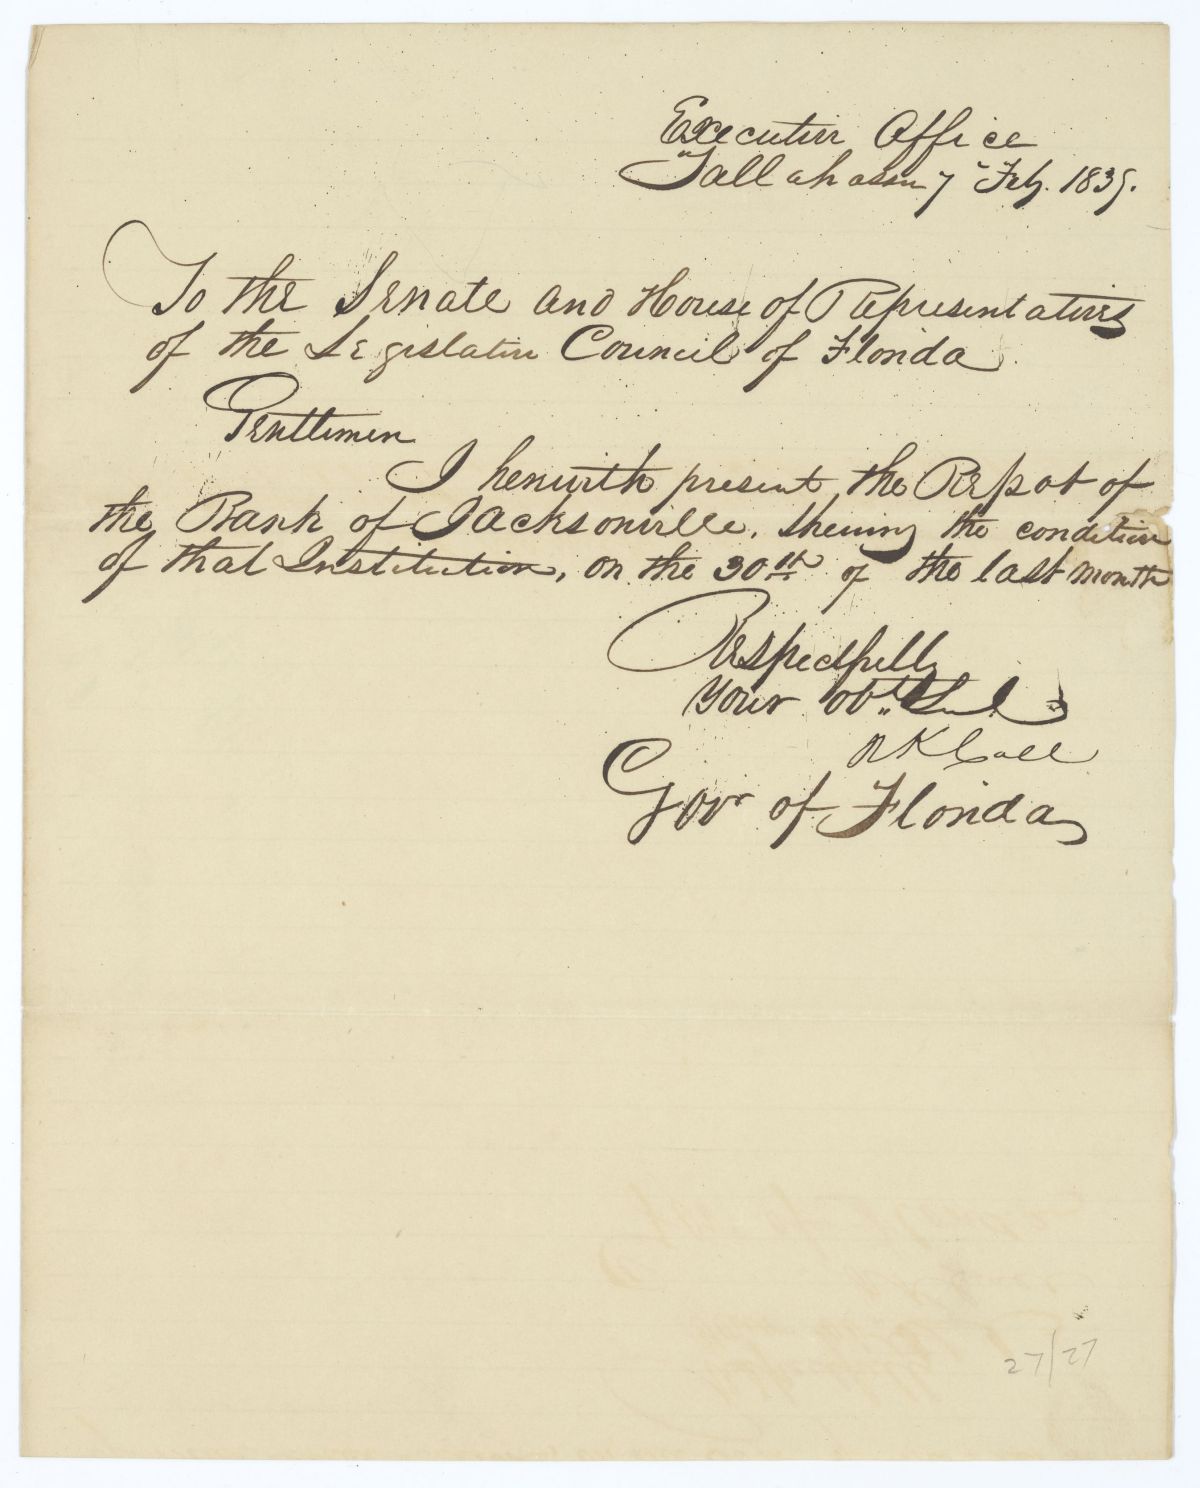 Executive Office
Tallahassee 7 Feby. 1839.
To the Senate and House of Representatives
of the Legislative Council of Florida
Gentlemen
I herewith present, the Report of
the Bank of Jacksonville, shewing the condition
of that Institution, on the 30th of the last month
Respectfully
Your obt. Servt
R K Call
Govr of Florida
27/27